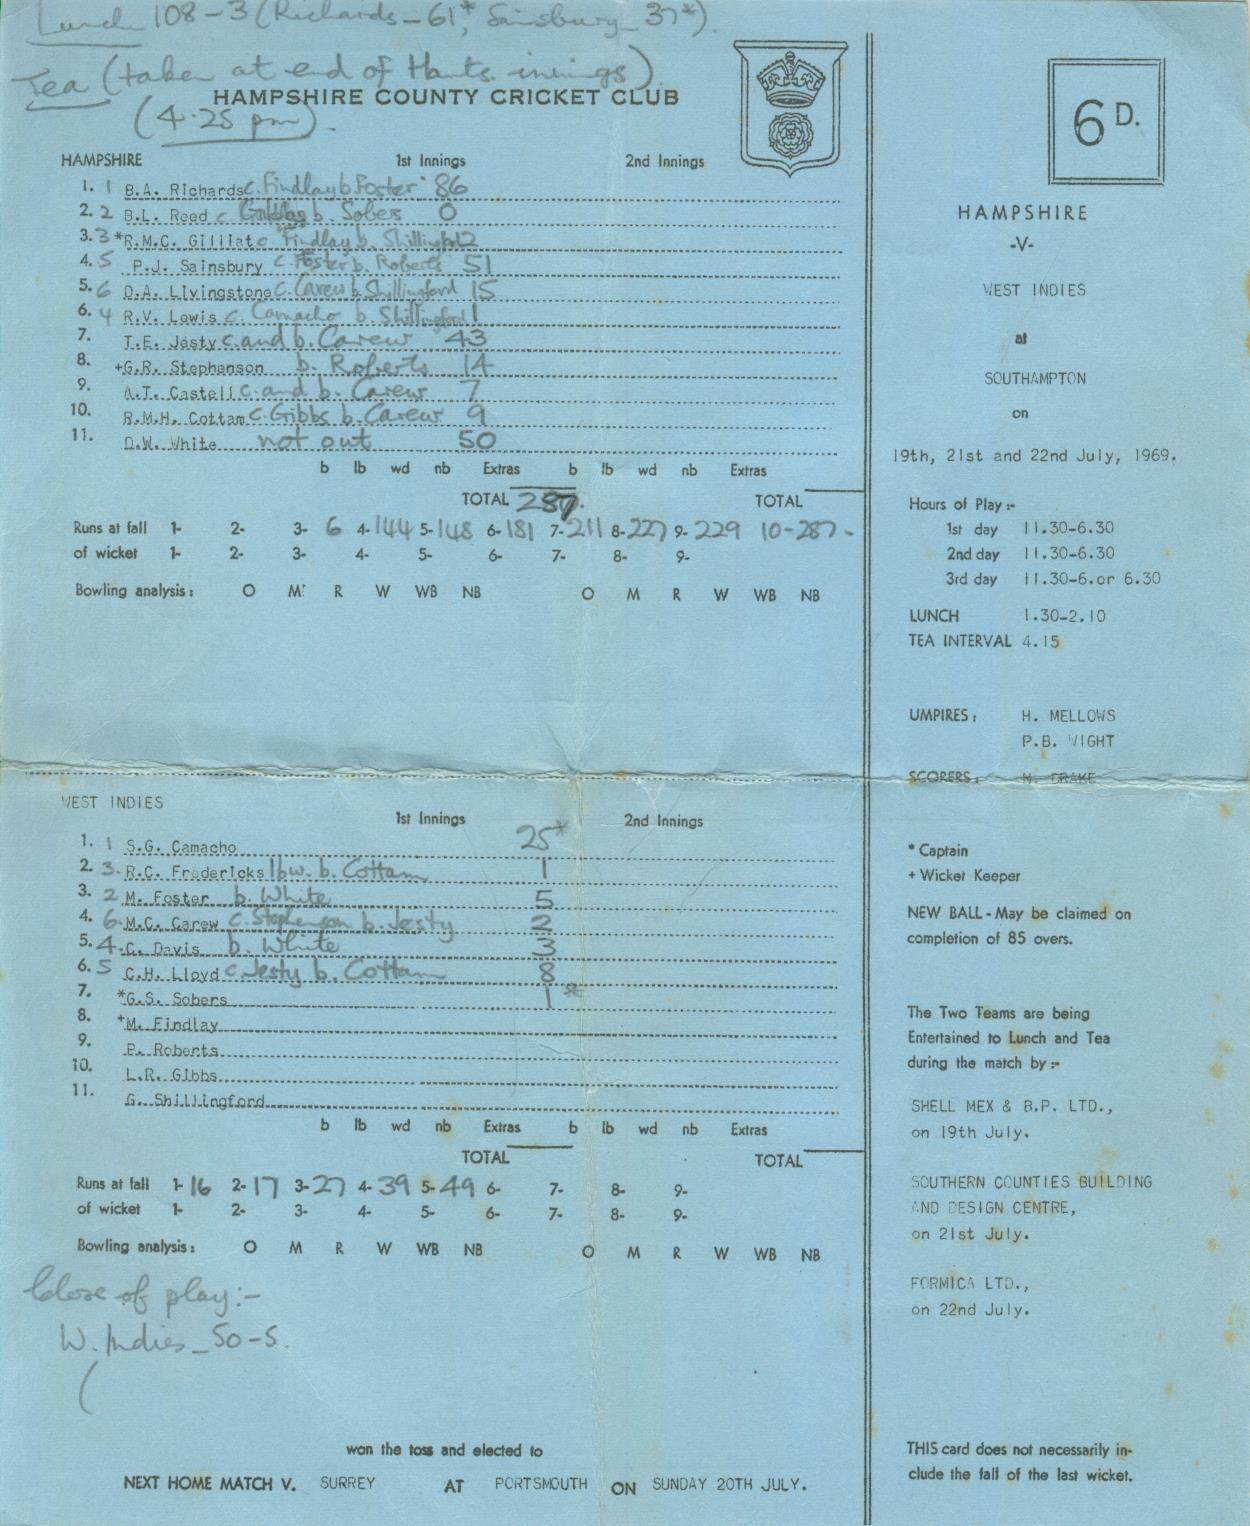 Lunch 108-3 (Richards - 61*, Sainsbury - 37*).
Tea (taken at end of Hants. innings)
HAMPSHIRE COUNTY CRICKET CLUB
(4.25 pm).
HAMPSHIRE 1st Innings 2nd Innings
1. 1 B.A. Richards c. Findlay b. Foster 86
2. 2 B.L. Reed c Gibbs b. Sobers 0
3. 3 *R.M.C. Gilliat c Findlay b. Shillingford 2
4. 5 P.J. Sainsbury c. Foster b. Roberts 51
5. 6 D.A. Livingstone c. Carew b. Shillingford 15
6. 4 R.V. Lewis c. Camacho b. Shillingford 1
7. T.E. Jesty c. and b. Carew 43
8. +G.R. Stephenson b. Roberts 14
9. A.T. Castell c. and b. Carew 7
10. R.M.H. Cottam c. Gibbs b. Carew 9
11. D.W. White not out 50
b lb wd nb Extras b lb wd nb Extras
TOTAL 287. TOTAL
Runs at fall 1- 2- 3- 6 4-144 5-148 6-181 7-211 8-227 9-229 10-287-
of wicket 1- 2- 3- 4- 5- 6- 7- 8- 9-
Bowling analysis: O M R W WB NB O M R W WB NB
WEST INDIES
1st Innings 2nd Innings
1. 1 S.G. Camacho 25*
2. 3. R.C. Fredericks lbw. b. Cottam 1
3. 2 M. Foster b. White 5
4. 6. M.C. Carew c. Stephenson b. Jesty 2
5. 4. C. Davis b. White 3
6. 5 C.H. Lloyd c. Jesty b. Cottam 8
7. *G.S. Sobers 1*
8. +M. Findlay
9. P. Roberts
10. L.R. Gibbs
11. G. Shillingford
b lb wd nb Extras b lb wd nb Extras
TOTAL TOTAL
Runs at fall 1-16 2-17 3-27 4-39 5-49 6- 7- 8- 9-
of wicket 1- 2- 3- 4- 5- 6- 7- 8- 9-
Bowling analysis: O M R W WB NB O M R W WB NB
Close of play:-
W. Indies - 50-5.
(
won the toss and elected to
NEXT HOME MATCH V. SURREY AT PORTSMOUTH ON SUNDAY 20TH JULY.
6D.
HAMPSHIRE
-V-
WEST INDIES
at
SOUTHAMPTON
on
19th, 21st and 22nd July, 1969.
Hours of Play:-
1st day 11.30-6.30
2nd day 11.30-6.30
3rd day 11.30-6.or 6.30
LUNCH 1.30-2.10
TEA INTERVAL 4.15
UMPIRES: H. MELLOWS
P.B. WIGHT
SCORERS: N. DRAKE
* Captain
+ Wicket Keeper
NEW BALL - May be claimed on
completion of 85 overs.
The Two Teams are being
Entertained to Lunch and Tea
during the match by:-
SHELL MEX & B.P. LTD.,
on 19th July.
SOUTHERN COUNTIES BUILDING
AND DESIGN CENTRE,
on 21st July.
FORMICA LTD.,
on 22nd July.
THIS card does not necessarily in-
clude the fall of the last wicket.